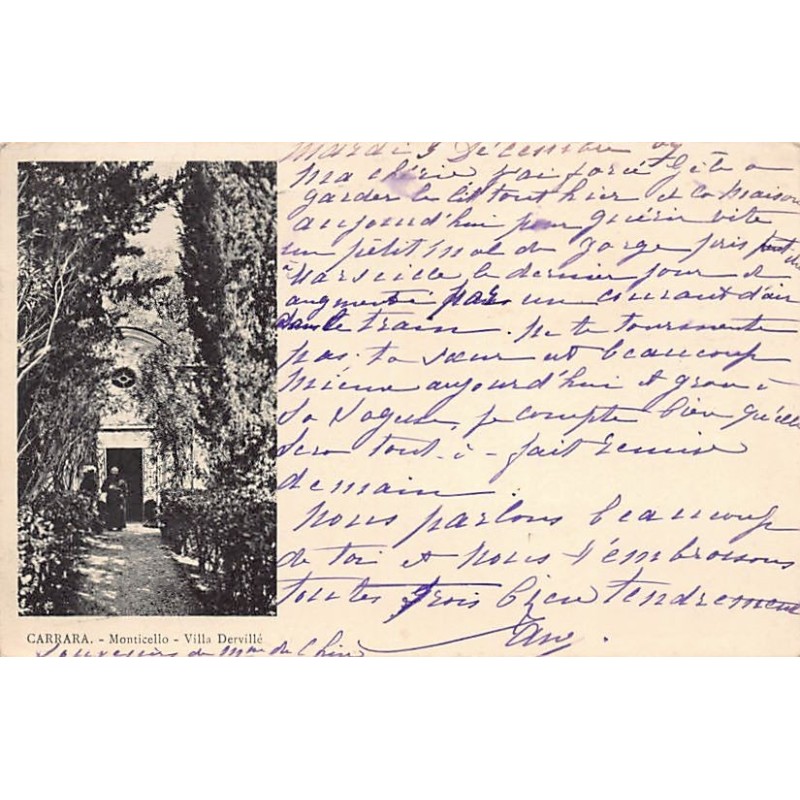 Mardi 3 Décembre
Ma chérie j'ai forcé à
garder le lit tout hier et la maison
aujourd'hui pour guérir vite
un petit mal de gorge pris
à Marseille le dernier jour et
augmenté par un courant d'air
dans le train. ne te tourmente
pas. ta sœur est beaucoup
mieux aujourd'hui et grâce à
je compte bien qu'elle
sera tout-à-fait remise
demain.
Nous parlons beaucoup
de toi et nous t'embrassons
toutes trois bien tendrement
CARRARA. - Monticello - Villa Dervillé
Souvenirs de Mme de